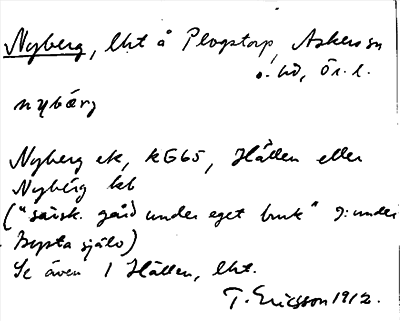 Nyberg, lht å Plogstorp, Askers sn
ö. hd, Ör. l.
nybærg
Nyberg ek, kG65, Hållen eller
Nybérg kb
("särsk. gård under eget bruk" ɔ: under
Bysta själv)
Se även 1 Hållen, lht.
T. Ericsson 1912.